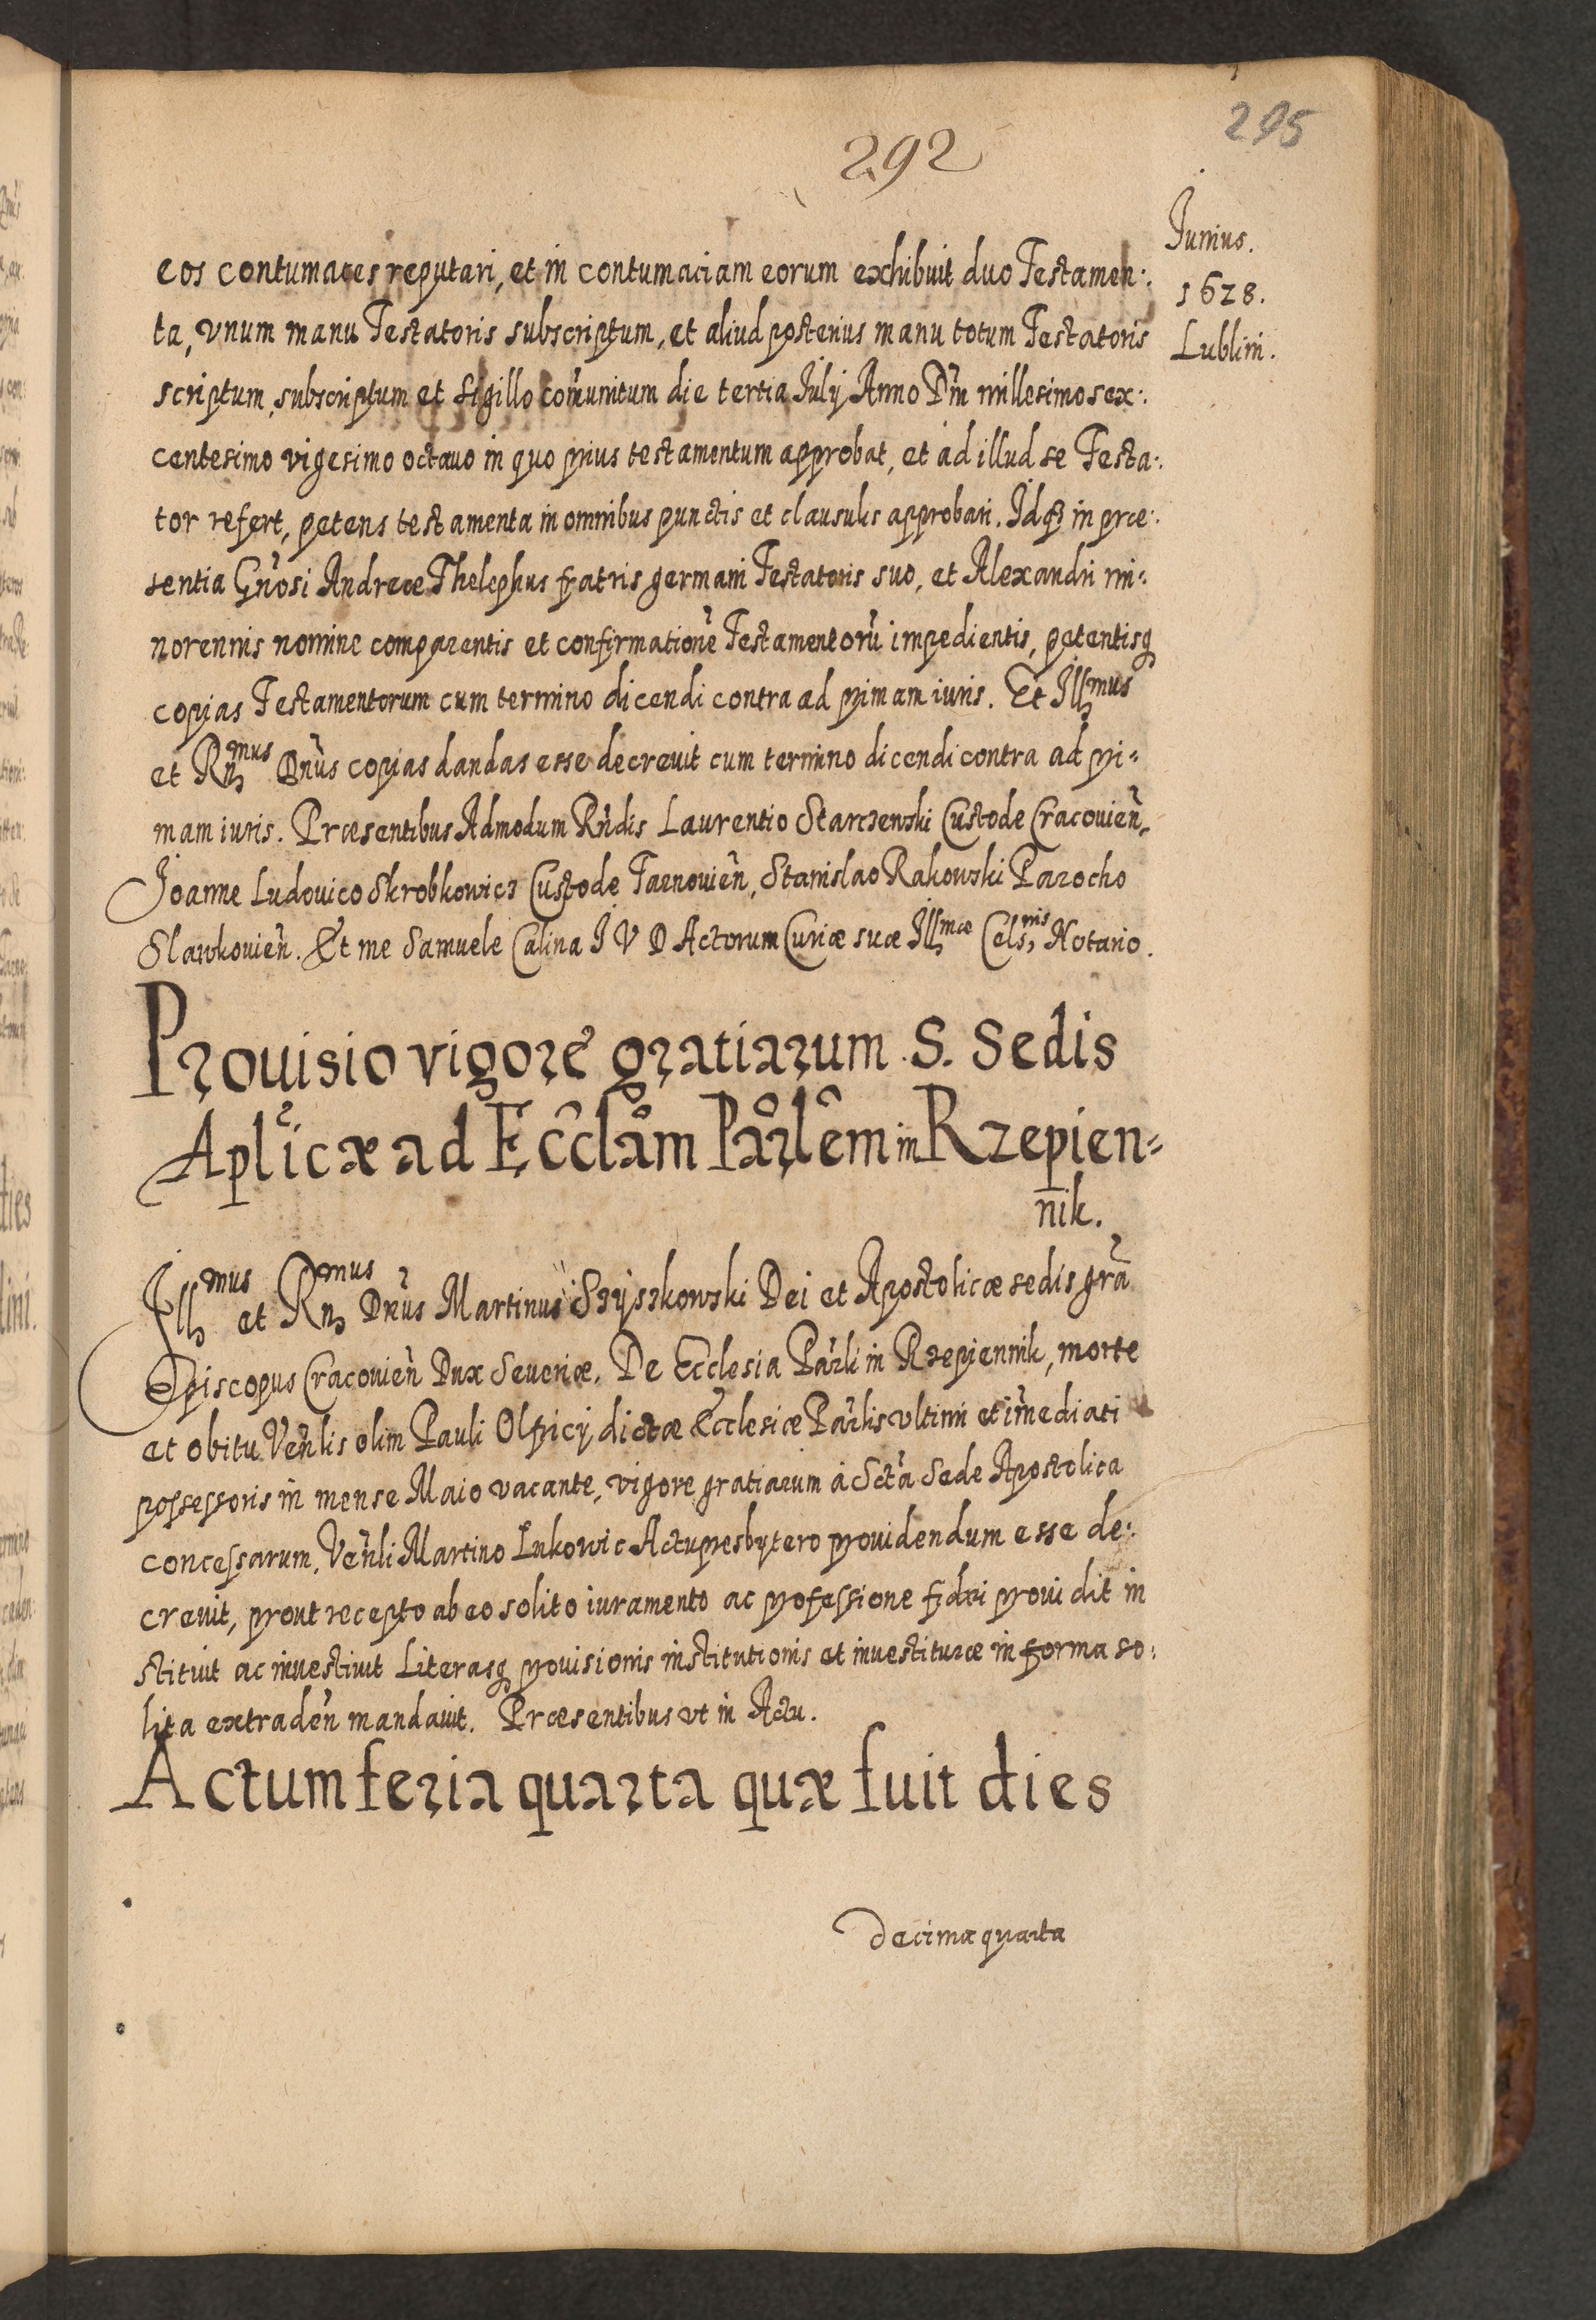 295
292
Junius.
1628.
Lublini.
eos contumaces reputari, et in contumaciam eorum exhibuit duo Testamen:
ta, vnum manu Testatoris subscriptum, et aliud posterius manu totum Testatoris
scriptum, subscriptum et sigillo com̃unitum die tertia Julij Anno Dñi millesimo sex:
centesimo vigesimo octauo in quo prius testamentum approbat, et ad illud se Testa:
tor refert, petens testamenta in omnibus punctis et clausulis approbari. Idqꝫ in præ:
sentia Gñosi Andreæ Thelephus fratris germani Testatoris suo, et Alexandri mi:
norennis nomine comparentis et confirmationẽ Testamentorũ impedientis, petentisqꝫ
copias Testamentorum cum termino dicendi contra ad primam iuris. Et Illmus
et Rñmus Dñus copias dandas esse decreuit cum termino dicendi contra ad pri=
mam iuris. Præsentibus Admodum Rñdis Laurentio Starczewski Custode Cracouieñ,
Joanne Ludouico Skrobkowicz Custode Tarnouieñ, Stanislao Rakowski Parocho
Slawkouieñ. Et me Samuele Calina J V D Actorum Curiæ suæ Illmæ Celsnis Notario.
Prouisio vigore gratiarum S. Sedis
Aplicæ ad Ecclãm Parlẽm in Rzepien=
nik.
Illmus et Rñmus Dñus Martinus Szyszkowski Dei et Apostolicæ sedis grã
Episcopus Cracouieñ Dux Seueriæ. De Ecclesia Parli in Rzepiennik, morte
et obitu Veñlis olim Pauli Olpicij dictæ Ecclesiæ Parlis vltimi et im̃ediati
possessoris in mense Maio vacante, vigore gratiarum à Sctã Sede Apostolica
concessarum. Veñli Martino Lukowic Actupresbytero prouidendum esse de:
creuit, prout recepto ab eo solito iuramento ac professione fidei prouidit in
stituit ac inuestiuit Literasqꝫ prouisionis institutionis et inuestituræ in forma so:
lita extradeñ mandauit. Præsentibus vt in Actu.
Actum feria quarta quæ fuit dies
decima quarta